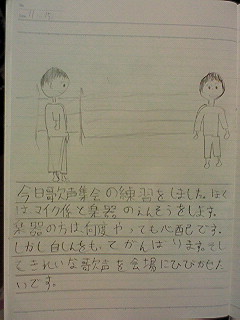 今日歌声集会の練習をしました。ぼく
はマイク係と楽器のえんそうをします。
楽器の方は何度やっても心配です。
しかし自しんをもってがんばります。そし
てきれいな歌声を会場にひびかせた
いです。